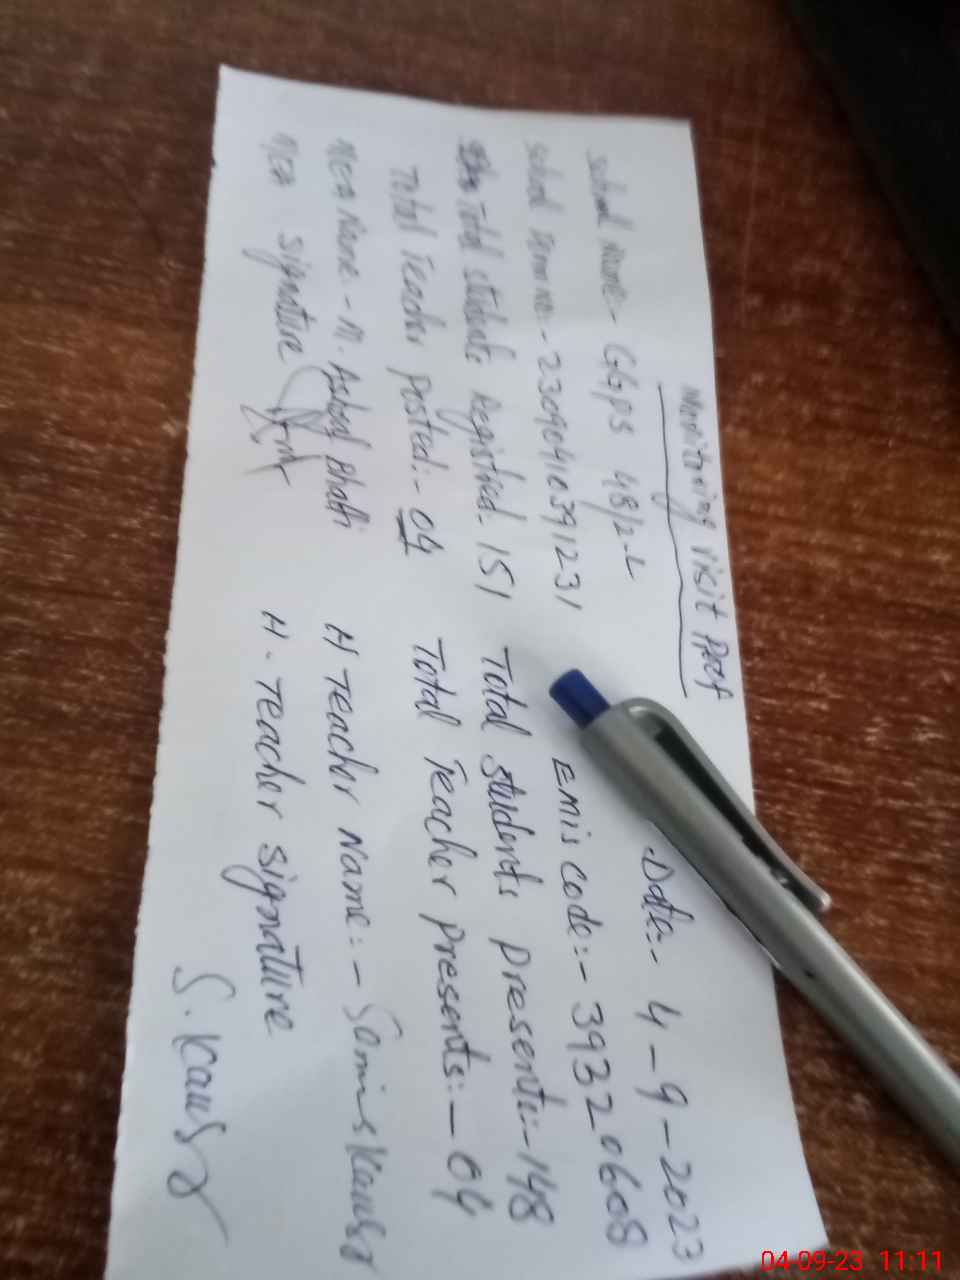 Monitoring visit Proof
School Name- GGPS 48/2-L Date:- 4-9-2023
School 23090410391231 EMIS code:- 39320608
Total students Registred. 151 Total students presents:-148
Total Teacher posted:- 04 Total Teacher presents:- 04
MEA Name - M. Bhatti H Teacher Name:- Kausar
MEA signature H. Teacher signature
S. Kausar
04-09-23 11:11